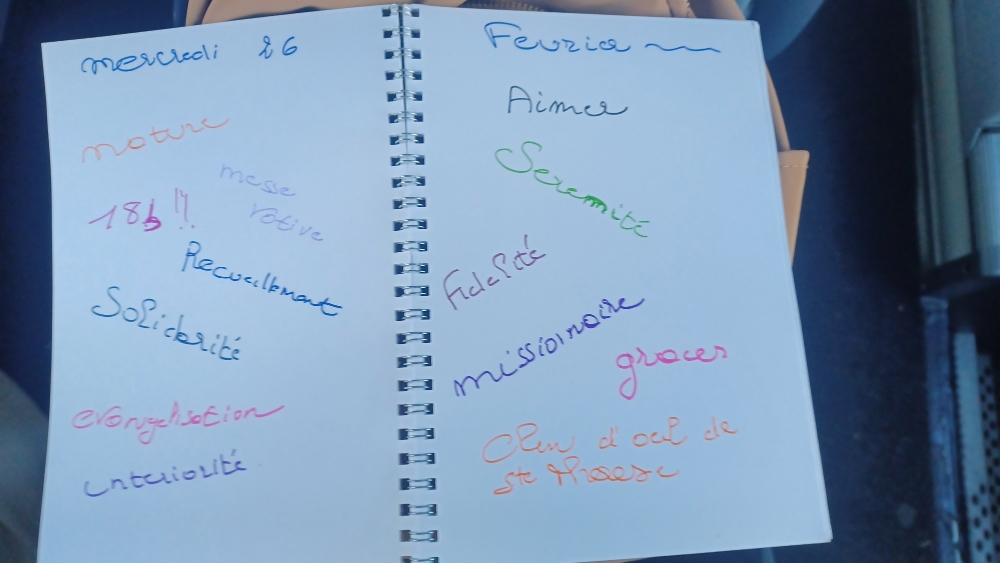 mercredi 26
nature
messe
votive
18h !!
Recueillement
Solidarité
evangelisation
interiorité
Fevrier
Aimer
Serenité
Fidelité
missionnaire
graces
Clin d'oeil de
ste Therese